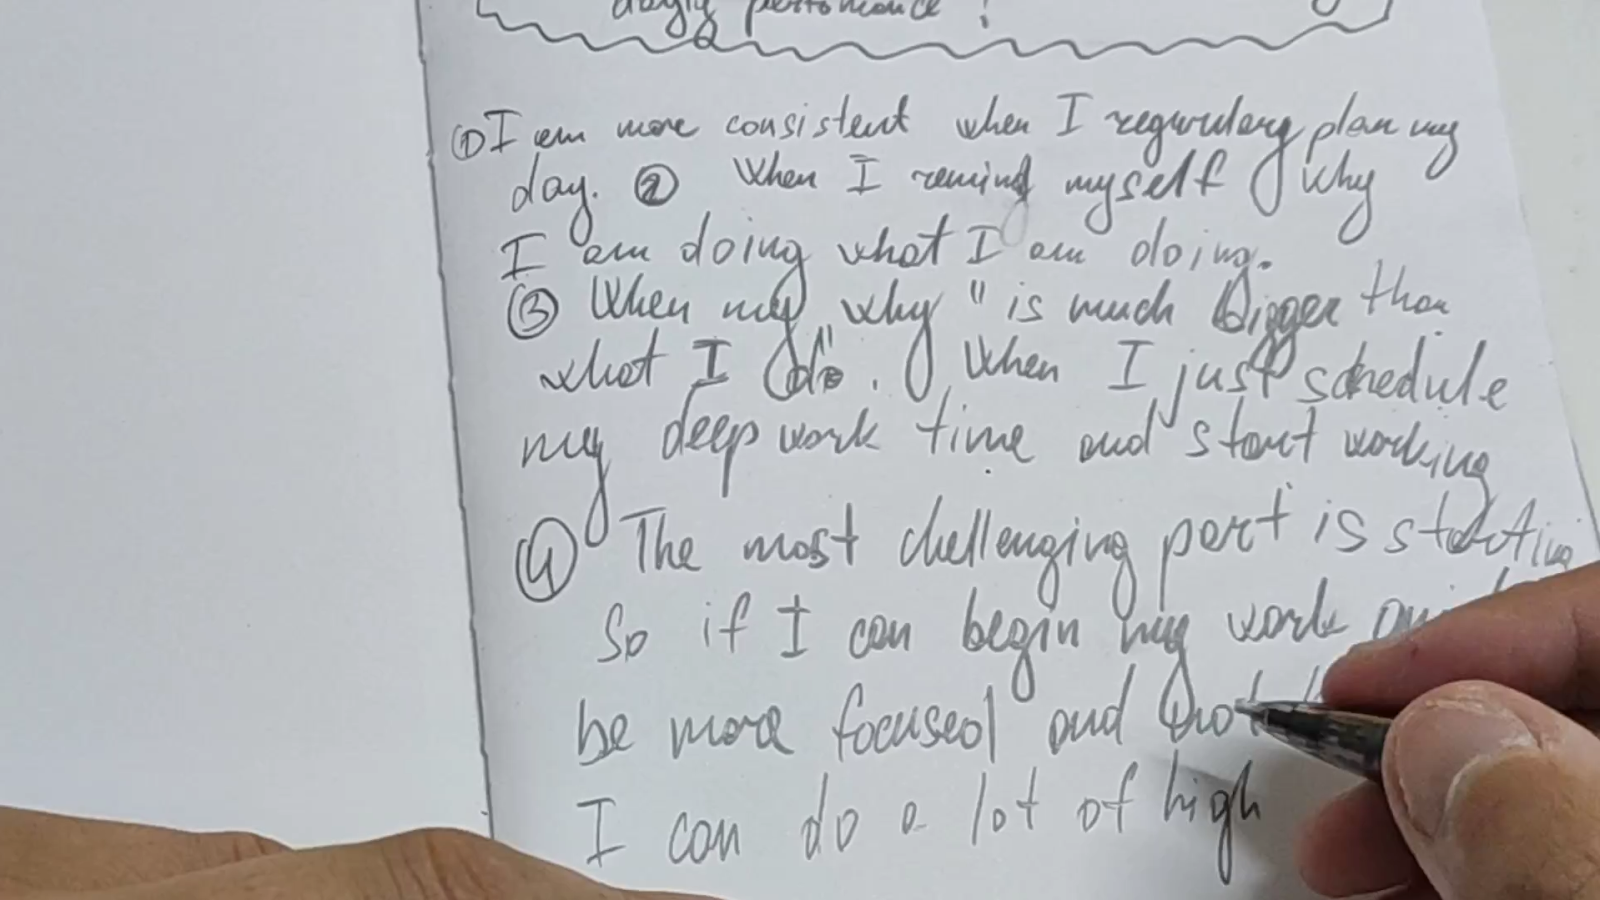 dayly performance?
① I am more consistent when I regurulary plan my
day. ② When I remind myself why
I am doing what I am doing.
③ When my "why" is much bigger than
what I "do". When I just schedule
my deep work time and start working
④ The most chellenging part is starting
So if I can begin my work
be more focused and not
I can do a lot of high